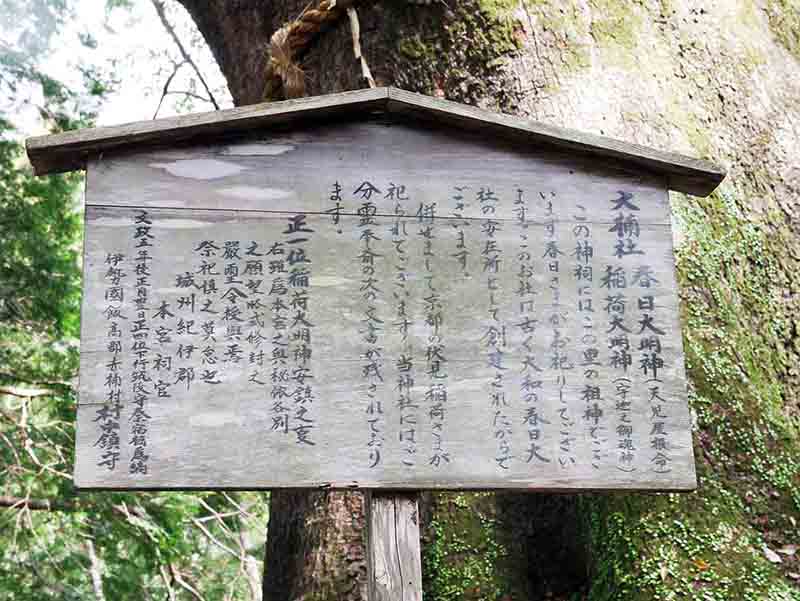 大楠社 春日大明神(天児屋根命)
稲荷大明神(宇迦之御魂神)
この神祠にはこの里の祖神でござ
います春日さまがお祀りしてござい
ます。このお社は古く大和の春日大
社の安在所として創建されたからで
ございます。
併せまして京都の伏見稲荷さまが
祀られてございます。当神社にはご
分霊奉斎の次の文書が残されており
ます。
正一位稲荷大明神安鎮之事
右雖為本宮之奥秘依各別
之願望如式修封之
厳璽令授與焉
祭祀慎之莫怠也
城州紀伊郡
本宮祠官
文政五年後正月翌日正四位下行筑後守
伊勢國飯高郡赤桶村 村中鎮守